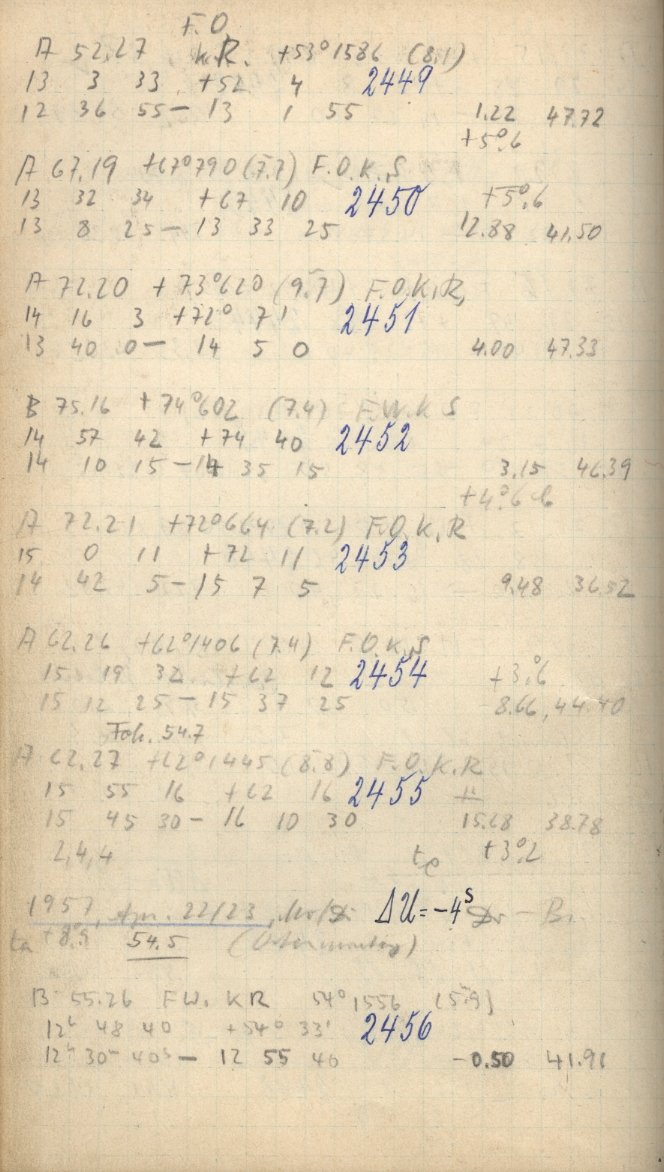 F.O.
A 52.27 K.R. +53°1586 (8.1)
13 3 33 +52 4 2449
12 36 55 - 13 1 55 -1.22 47.72
+5°.6
A 67.19 +67°790 (7.7) F.O.K.S
13 32 34 +67 10 2450 +5°.6
13 8 25 - 13 33 25 12.88 41.50
A 72.20 +73°620 (9.7) F.O.K.R.
14 16 3 +72° 71 2451
13 40 0 - 14 5 0 4.00 47.33
B 75.16 +74°602 (7.4) F.W.K S
14 57 42 +74 40 2452
14 10 15 - 14 35 15 3.15 46.39
+4°.6
A 72.21 +72°664 (7.2) F.O.K.R
15 0 11 +72 11 2453
14 42 5 - 15 7 5 9.48 36.52
A 62.26 +62°1406 (7.4) F.O.K.S
15 19 32 +62 12 2454 +3°.6
15 12 25 - 15 37 25 8.66, 44.40
Fok. 54.7
A 62.27 +62°1445 (8.8) F.O.K.R
15 55 16 +62 16 2455
15 45 30 - 16 10 30 15.68 38.78
2,4,4 te +3°.2
1957, Apr. 22/23, Mo/Di ΔU = -4s
ta +8.5 54.5 (Ostermontag)
B 55.26 F.W. KR 54°1556 (5.9)
12h 48 40 +54° 33' 2456
12h 30m 40s - 12 55 40 -0.50 41.91